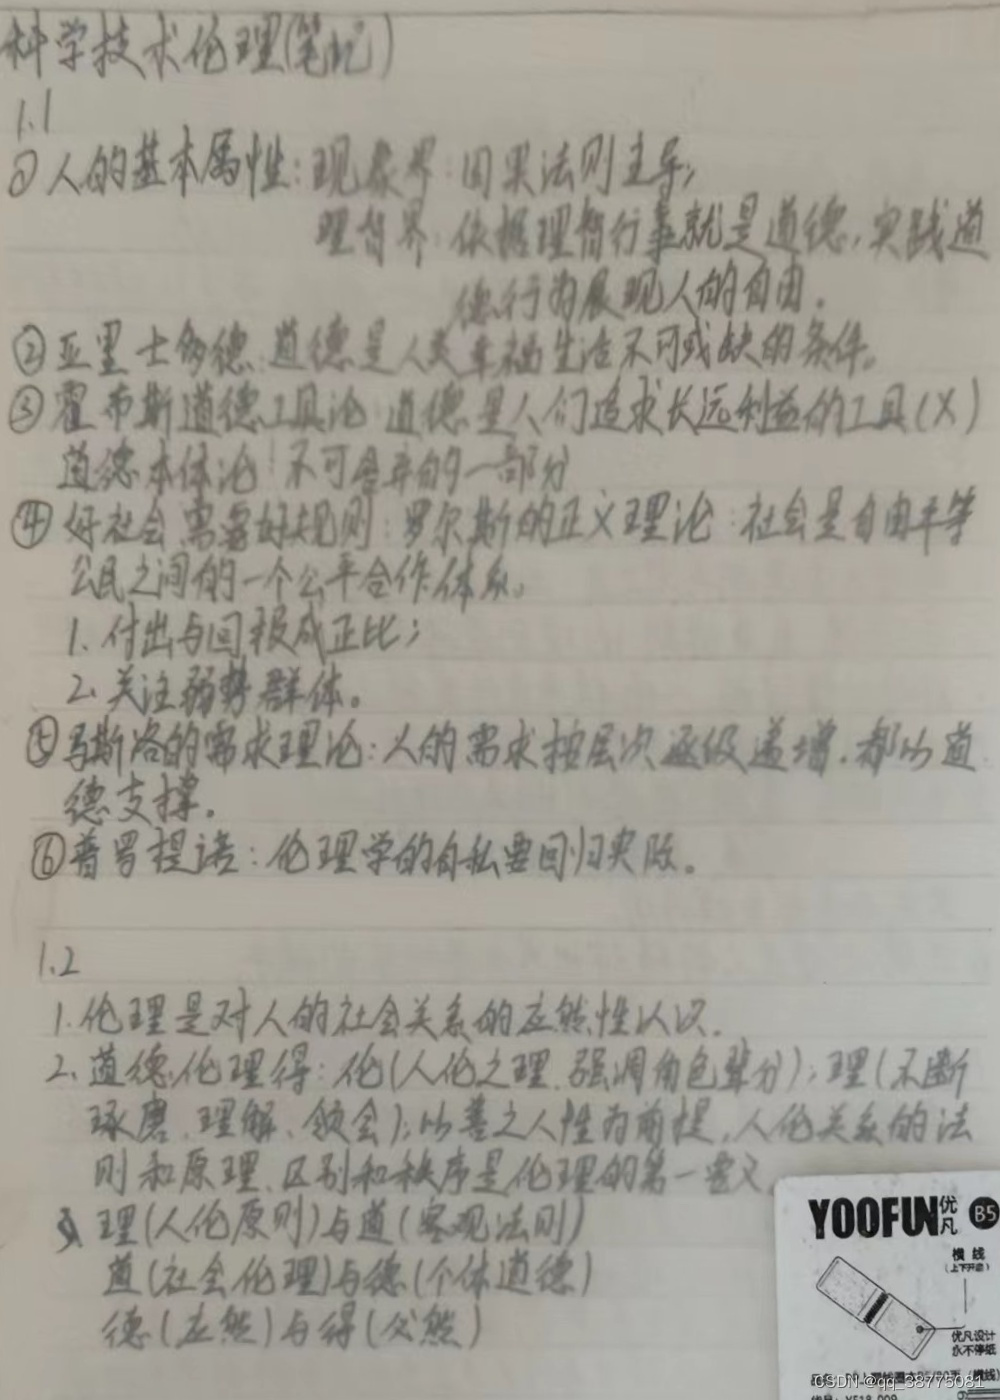 科学技术伦理(笔记)
1.1
①人的基本属性：现象界：因果法则主导；
理智界：依据理智行事就是道德，实践道
德行为展现人的自由。
②亚里士多德：道德是人类幸福生活不可或缺的条件。
③霍布斯道德工具论：道德是人们追求长远利益的工具(X)
道德本体论：不可舍弃的一部分
④好社会需要好规则：罗尔斯的正义理论：社会是自由平等
公民之间的一个公平合作体系。
1. 付出与回报成正比；
2. 关注弱势群体。
⑤马斯洛的需求理论：人的需求按层次逐级递增，都以道
德支撑。
⑥普罗提诺：伦理学的自私要回归失败。
1.2
1. 伦理是对人的社会关系的应然性认识.
2. 道德伦理得：伦(人伦之理，强调角色辈分)；理(不断
琢磨、理解、领会)；以善之人性为前提，人伦关系的法
则和原理，区别和秩序是伦理的第一要义
3. 理(人伦原则)与道(客观法则)
道(社会伦理)与德(个体道德)
德(应然)与得(必然)
YOOFUN优凡 B5
横线
(上下开启)
优凡设计
永不停纸
CSDN @qq_38775081